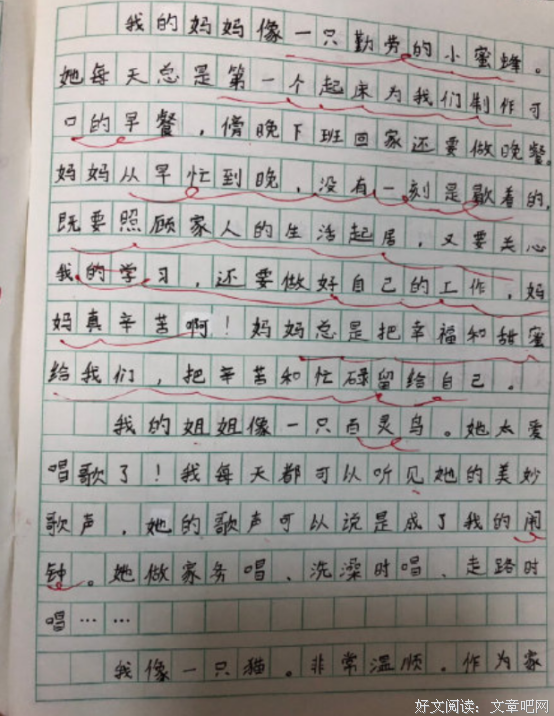 我的妈妈像一只勤劳的小蜜蜂。
她每天总是第一个起床为我们制作可
口的早餐，傍晚下班回家还要做晚餐。
妈妈从早忙到晚，没有一刻是歇着的，
既要照顾家人的生活起居，又要关心
我的学习，还要做好自己的工作，妈
妈真辛苦啊！妈妈总是把幸福和甜蜜
给我们，把辛苦和忙碌留给自己。
我的姐姐像一只百灵鸟。她太爱
唱歌了！我每天都可以听见她的美妙
歌声，她的歌声可以说是成了我的闹
钟。她做家务唱、洗澡时唱、走路时
唱……
我像一只猫。非常温顺。作为家
好文阅读：文章吧网